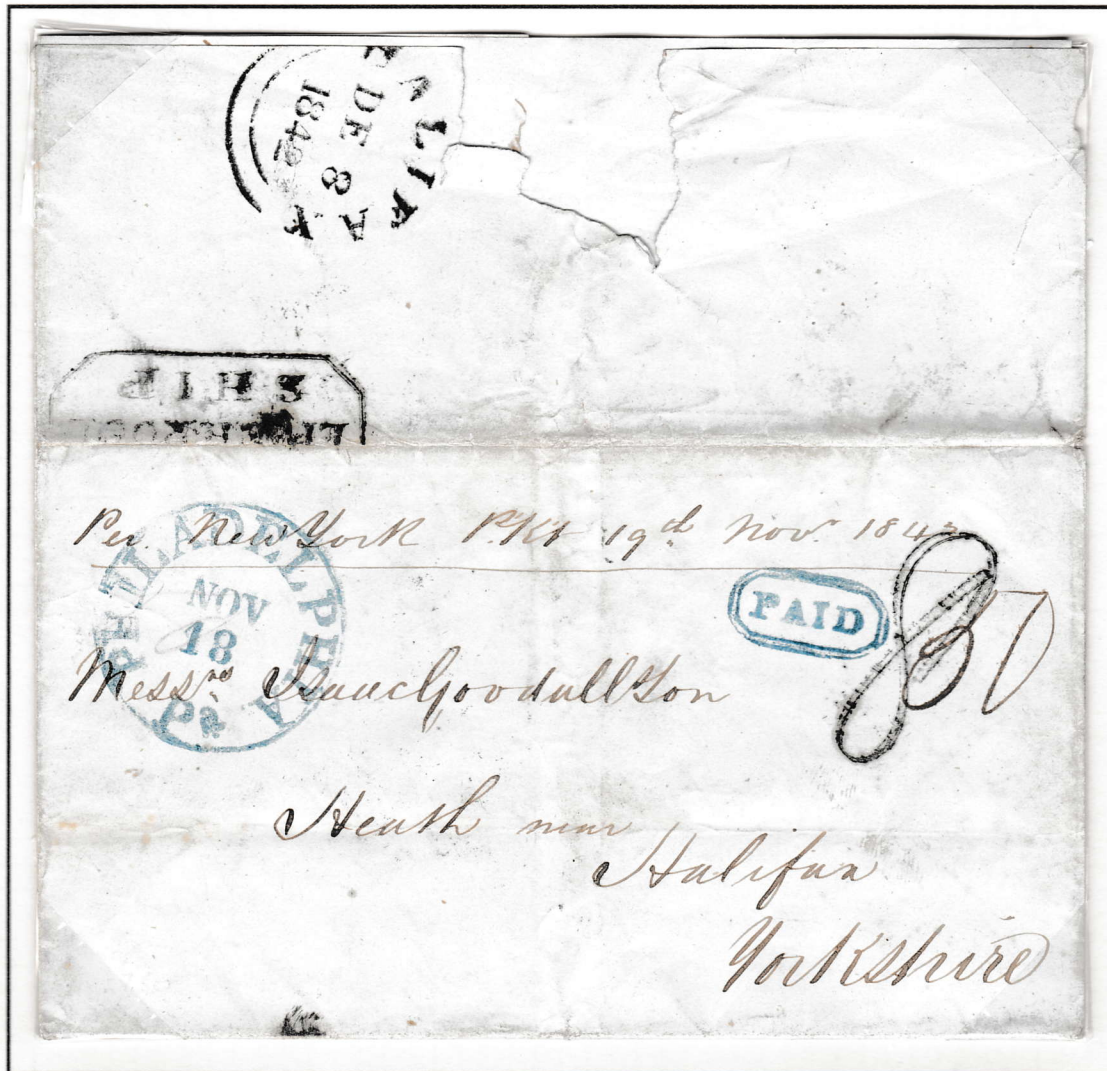 HALIFAX
DE 8
1842
LIVERPOOL
SHIP
Per New York Pkt 19d Nov 1842
PHILADELPHIA Pa
NOV
18
PAID
8
Messrs Isaac Goodall & Son
Heath near
Halifax
Yorkshire